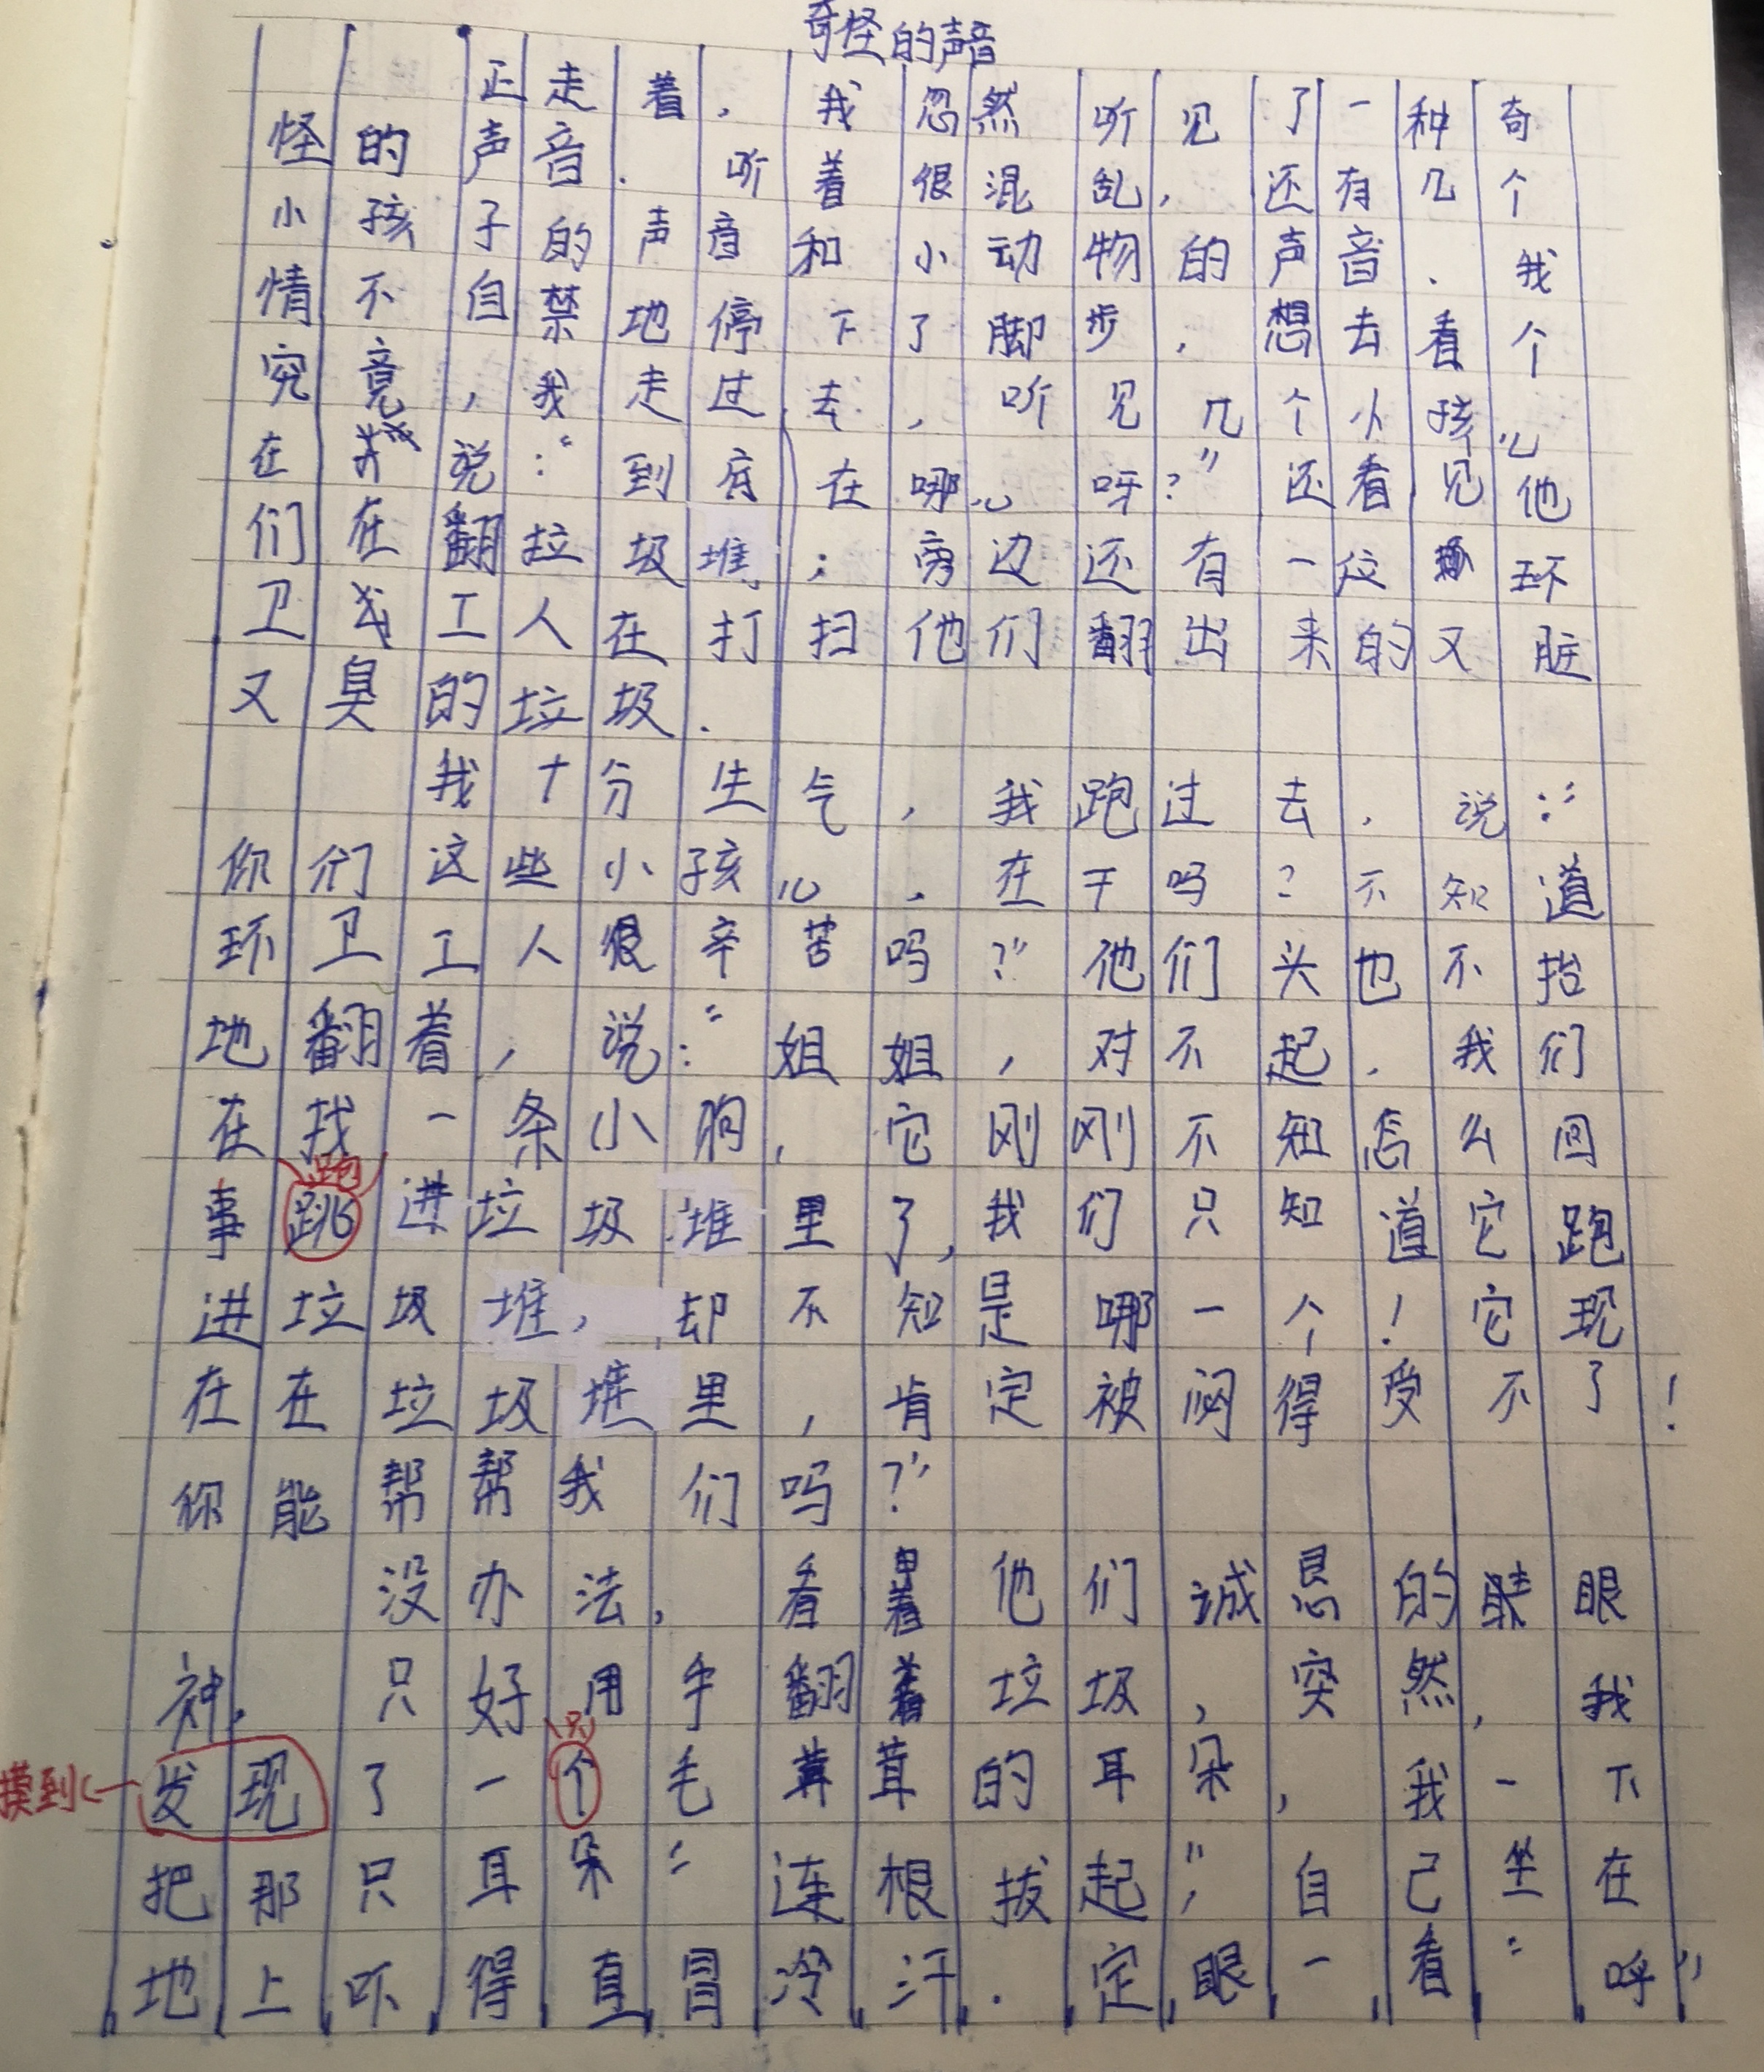 奇怪的声音
正走着，我忽然听见了一种奇
怪的声音．听着很混乱，还有几个
小孩子的声音和小动物的声音．我
情不自禁地停下了脚步，想去看个
究竟，我走过去，听见几个小孩儿
在说：“到底在哪儿呀？”还看见他
们在翻垃圾堆；旁边还有一位环
卫工人在打扫他们翻出来的又脏
又臭的垃圾．
我十分生气，我跑过去，说：“
你们这些小孩儿，在干吗？不知道
环卫工人很辛苦吗？”他们头也不抬
地翻着，说：“姐姐，对不起，我们
在找一条小狗，它刚刚不知怎么回
跑
事跳进垃圾堆里了，我们只知道它跑
进垃圾堆，却不知是哪一个！它现
在在垃圾堆里，肯定被闷得受不了！
你能帮帮我们吗？”
没办法，看着他们诚恳的眼
神，只好用手翻着垃圾，突然，我
只
摸到
发现了一个毛茸茸的耳朵，我一下
把那只耳朵“连根拔起”，自己坐在
地上吓得直冒冷汗．定眼一看“呼”